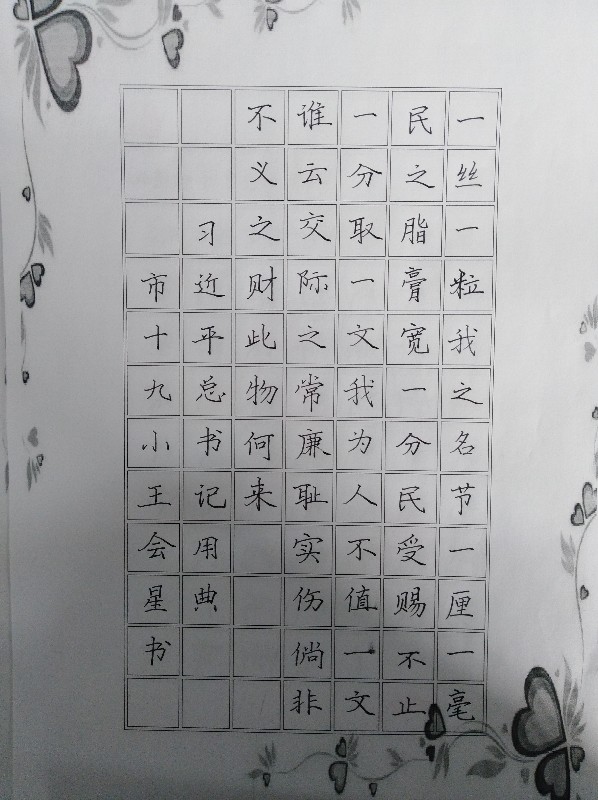 一丝一粒我之名节一厘一毫
民之脂膏宽一分民受赐不止
一分取一文我为人不值一文
谁云交际之常廉耻实伤倘非
不义之财此物何来
习近平总书记用典
市十九小王会星书